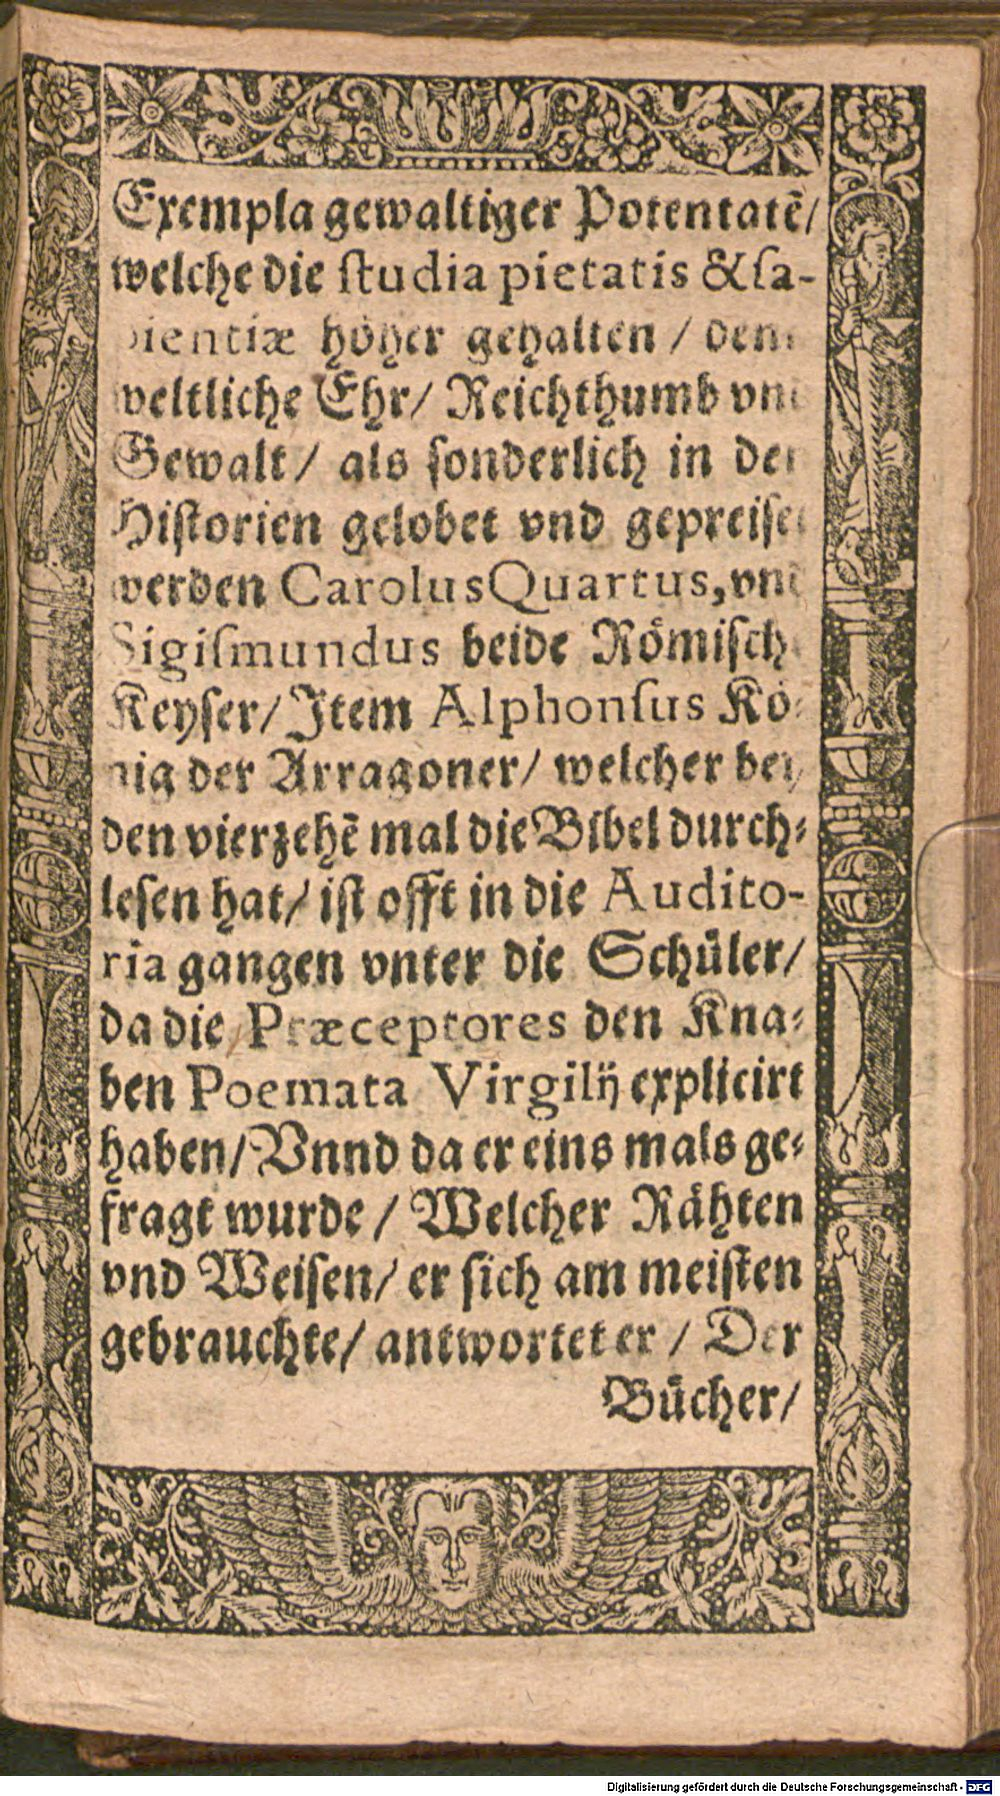 Exempla gewaltiger Potentatē/
welche die ſtudia pietatis & ſa-
pientiæ höher gehalten / denn
weltliche Ehr/ Reichthumb vnd
Gewalt/ als ſonderlich in den
Hiſtorien gelobet vnd gepreiſet
werden Carolus Quartus, vnd
Sigiſmundus beide Römiſche
Keyſer/ Item Alphonſus Kö-
nig der Arragoner/ welcher bey
den vierzehē mal die Bibel durch-
leſen hat/ iſt offt in die Audito-
ria gangen vnter die Schüler/
da die Præceptores den Kna-
ben Poemata Virgilij explicirt
haben/ Vnnd da er eins mals ge-
fragt wurde / Welcher Rähten
vnd Weiſen/ er ſich am meiſten
gebrauchte/ antwortet er / Der
Bücher/
Digitalisierung gefördert durch die Deutsche Forschungsgemeinschaft - DFG